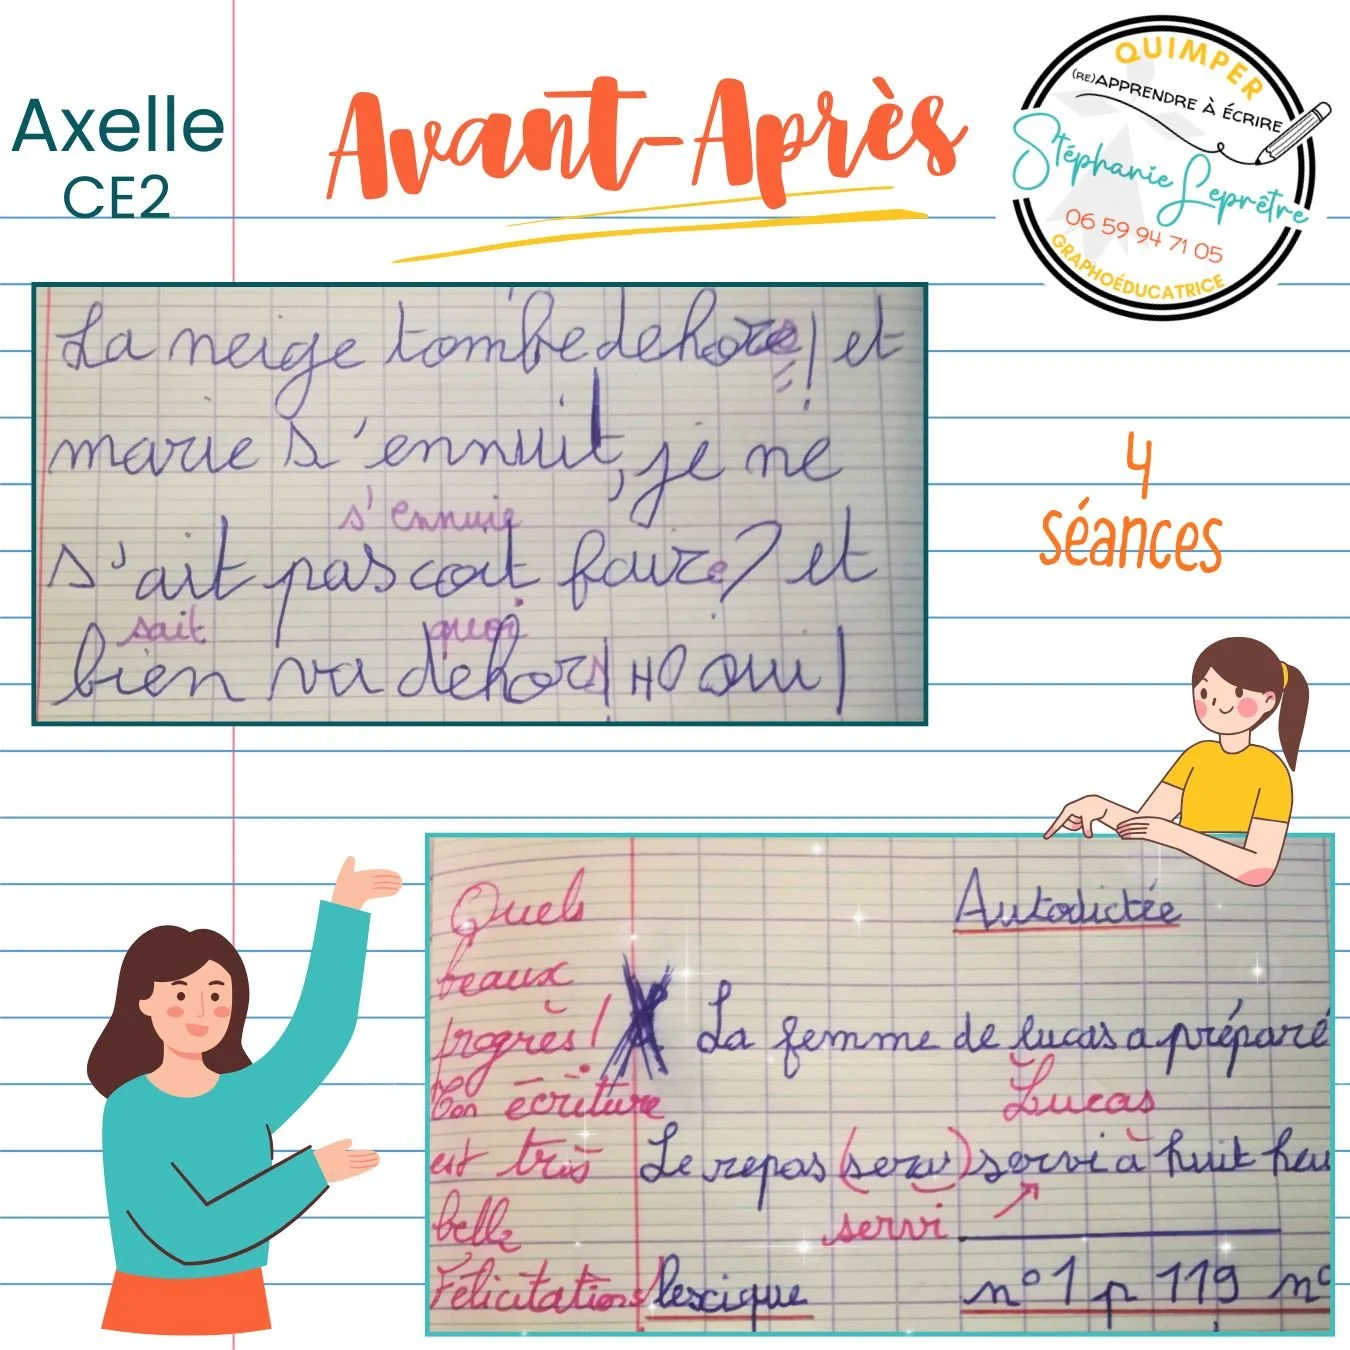 Axelle
CE2
Avant-Après
QUIMPER
(RE)APPRENDRE À ÉCRIRE
Stéphanie Leprêtre
06 59 94 71 05
GRAPHOÉDUCATRICE
La neige tombe dehors ! et
marie s'ennuit, je ne
s'ennuie
s'ait pas coit faire ? et
sait quoi
bien va dehors ! HO oui !
4
séances
Quels
beaux
progrès !
Ton écriture
est très
belle
Félicitations
Autodictée
La femme de lucas a préparé
Lucas
Le repas (serv) servi à huit heu
servi
lexique n°1 p 119 n°